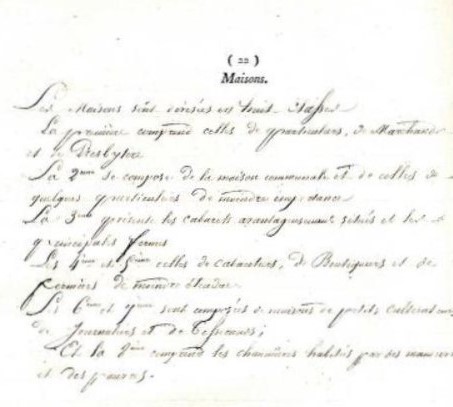 ( 22 )
Maisons.
Les Maisons sont divisées en huit Classes
La première comprend celles de particuliers, de Marchands
et le Presbytère
La 2eme se compose de la maison communale et de celles de
quelques particuliers de moindre importance
La 3eme contient les cabarets avantageusement situés et les
principales fermes
Les 4eme et 5eme celles de cabaretiers, de Boutiquiers et de
fermiers de moindre étendue
Les 6eme et 7eme sont composées de maisons de petits Cultivateurs
de Journaliers et de Tisserands;
Et la 8eme comprend les chaumières habitées par des manouvriers
et des pauvres.